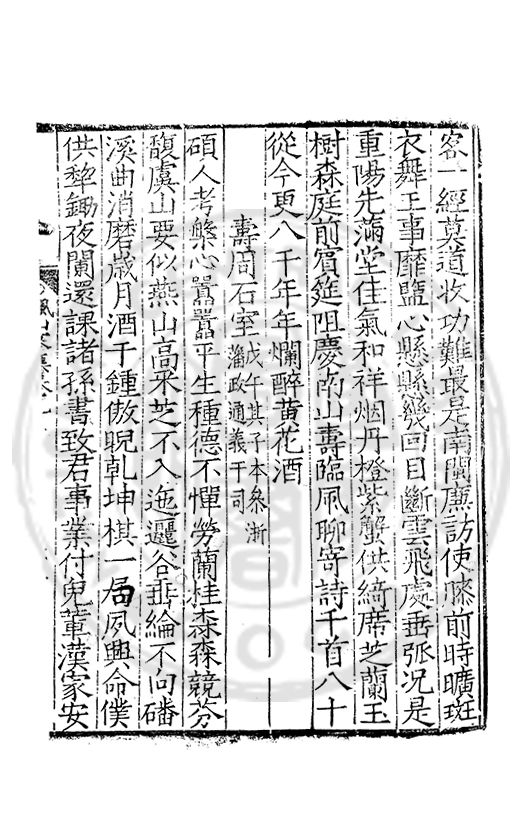 客一經莫道收功難最是南閩廉訪使膝前時曠斑
衣舞王事靡盬心懸懸幾回目斷雲飛處垂弧況是
重陽先滿堂佳氣和祥烟丹橙紫蟹供綺席芝蘭玉
樹森庭前賓筵阻慶南山壽臨風聊寄詩千首八十
從今更八千年年爛醉黃花酒
壽周石室戊午其子本叅浙藩政通義于司
碩人考槃心囂囂平生種德不憚勞蘭桂森森競芬
馥虞山要似燕山高采芝不入迤邐谷垂綸不向磻
溪曲消磨歲月酒千鍾傲睨乾坤棋一局夙興命僕
供犂鋤夜闌還課諸孫書致君事業付兒輩漢家安